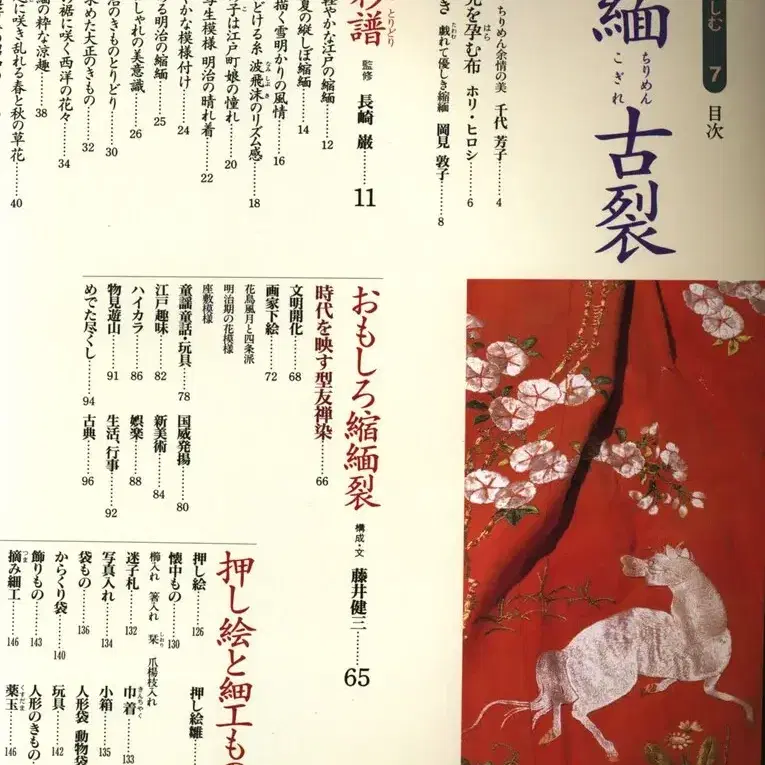 しむ 7 目次
緬 ちりめん
古裂 こぎれ
ちりめん余情の美 千代 芳子……4
を孕む布 ホリ・ヒロシ……6
き 戯れて優しき縮緬 岡見 敦子……8
彩譜 とりどり 監修 長崎 巌……11
やかな江戸の縮緬……12
夏の縦しぼ縮緬……14
描く雪明かりの風情……16
どける糸 波飛沫のリズム感……18
子は江戸町娘の憧れ……20
生模様 明治の晴れ着……22
かな模様付け……24
る明治の縮緬……25
しゃれの美意識……26
のきものとりどり……30
求めた大正のきもの……32
の裾に咲く西洋の花々……34
の粋な涼趣……38
に咲き乱れる春と秋の草花……40
おもしろ縮緬裂 構成・文 藤井健三……65
時代を映す型友禅染……66
文明開化……68
画家下絵……72
花鳥風月と四条派
明治期の花模様
座敷模様
童謡童話・玩具……78
江戸趣味……82
ハイカラ……86
物見遊山……91
めでた尽くし……94
国威発揚……80
新美術……84
娯楽……88
生活、行事……92
古典……96
押し絵と細工もの
押し絵……126
懐中もの……130
櫛入れ 箸入れ 栞 しおり 爪楊枝入れ
迷子札……132
写真入れ……134
袋もの……136
からくり袋……140
飾りもの……143
摘み細工……146
押し絵雛……
巾着 きんちゃく……133
小箱……135
人形袋 動物袋
玩具……142
人形のきもの
薬玉 くすだま……146